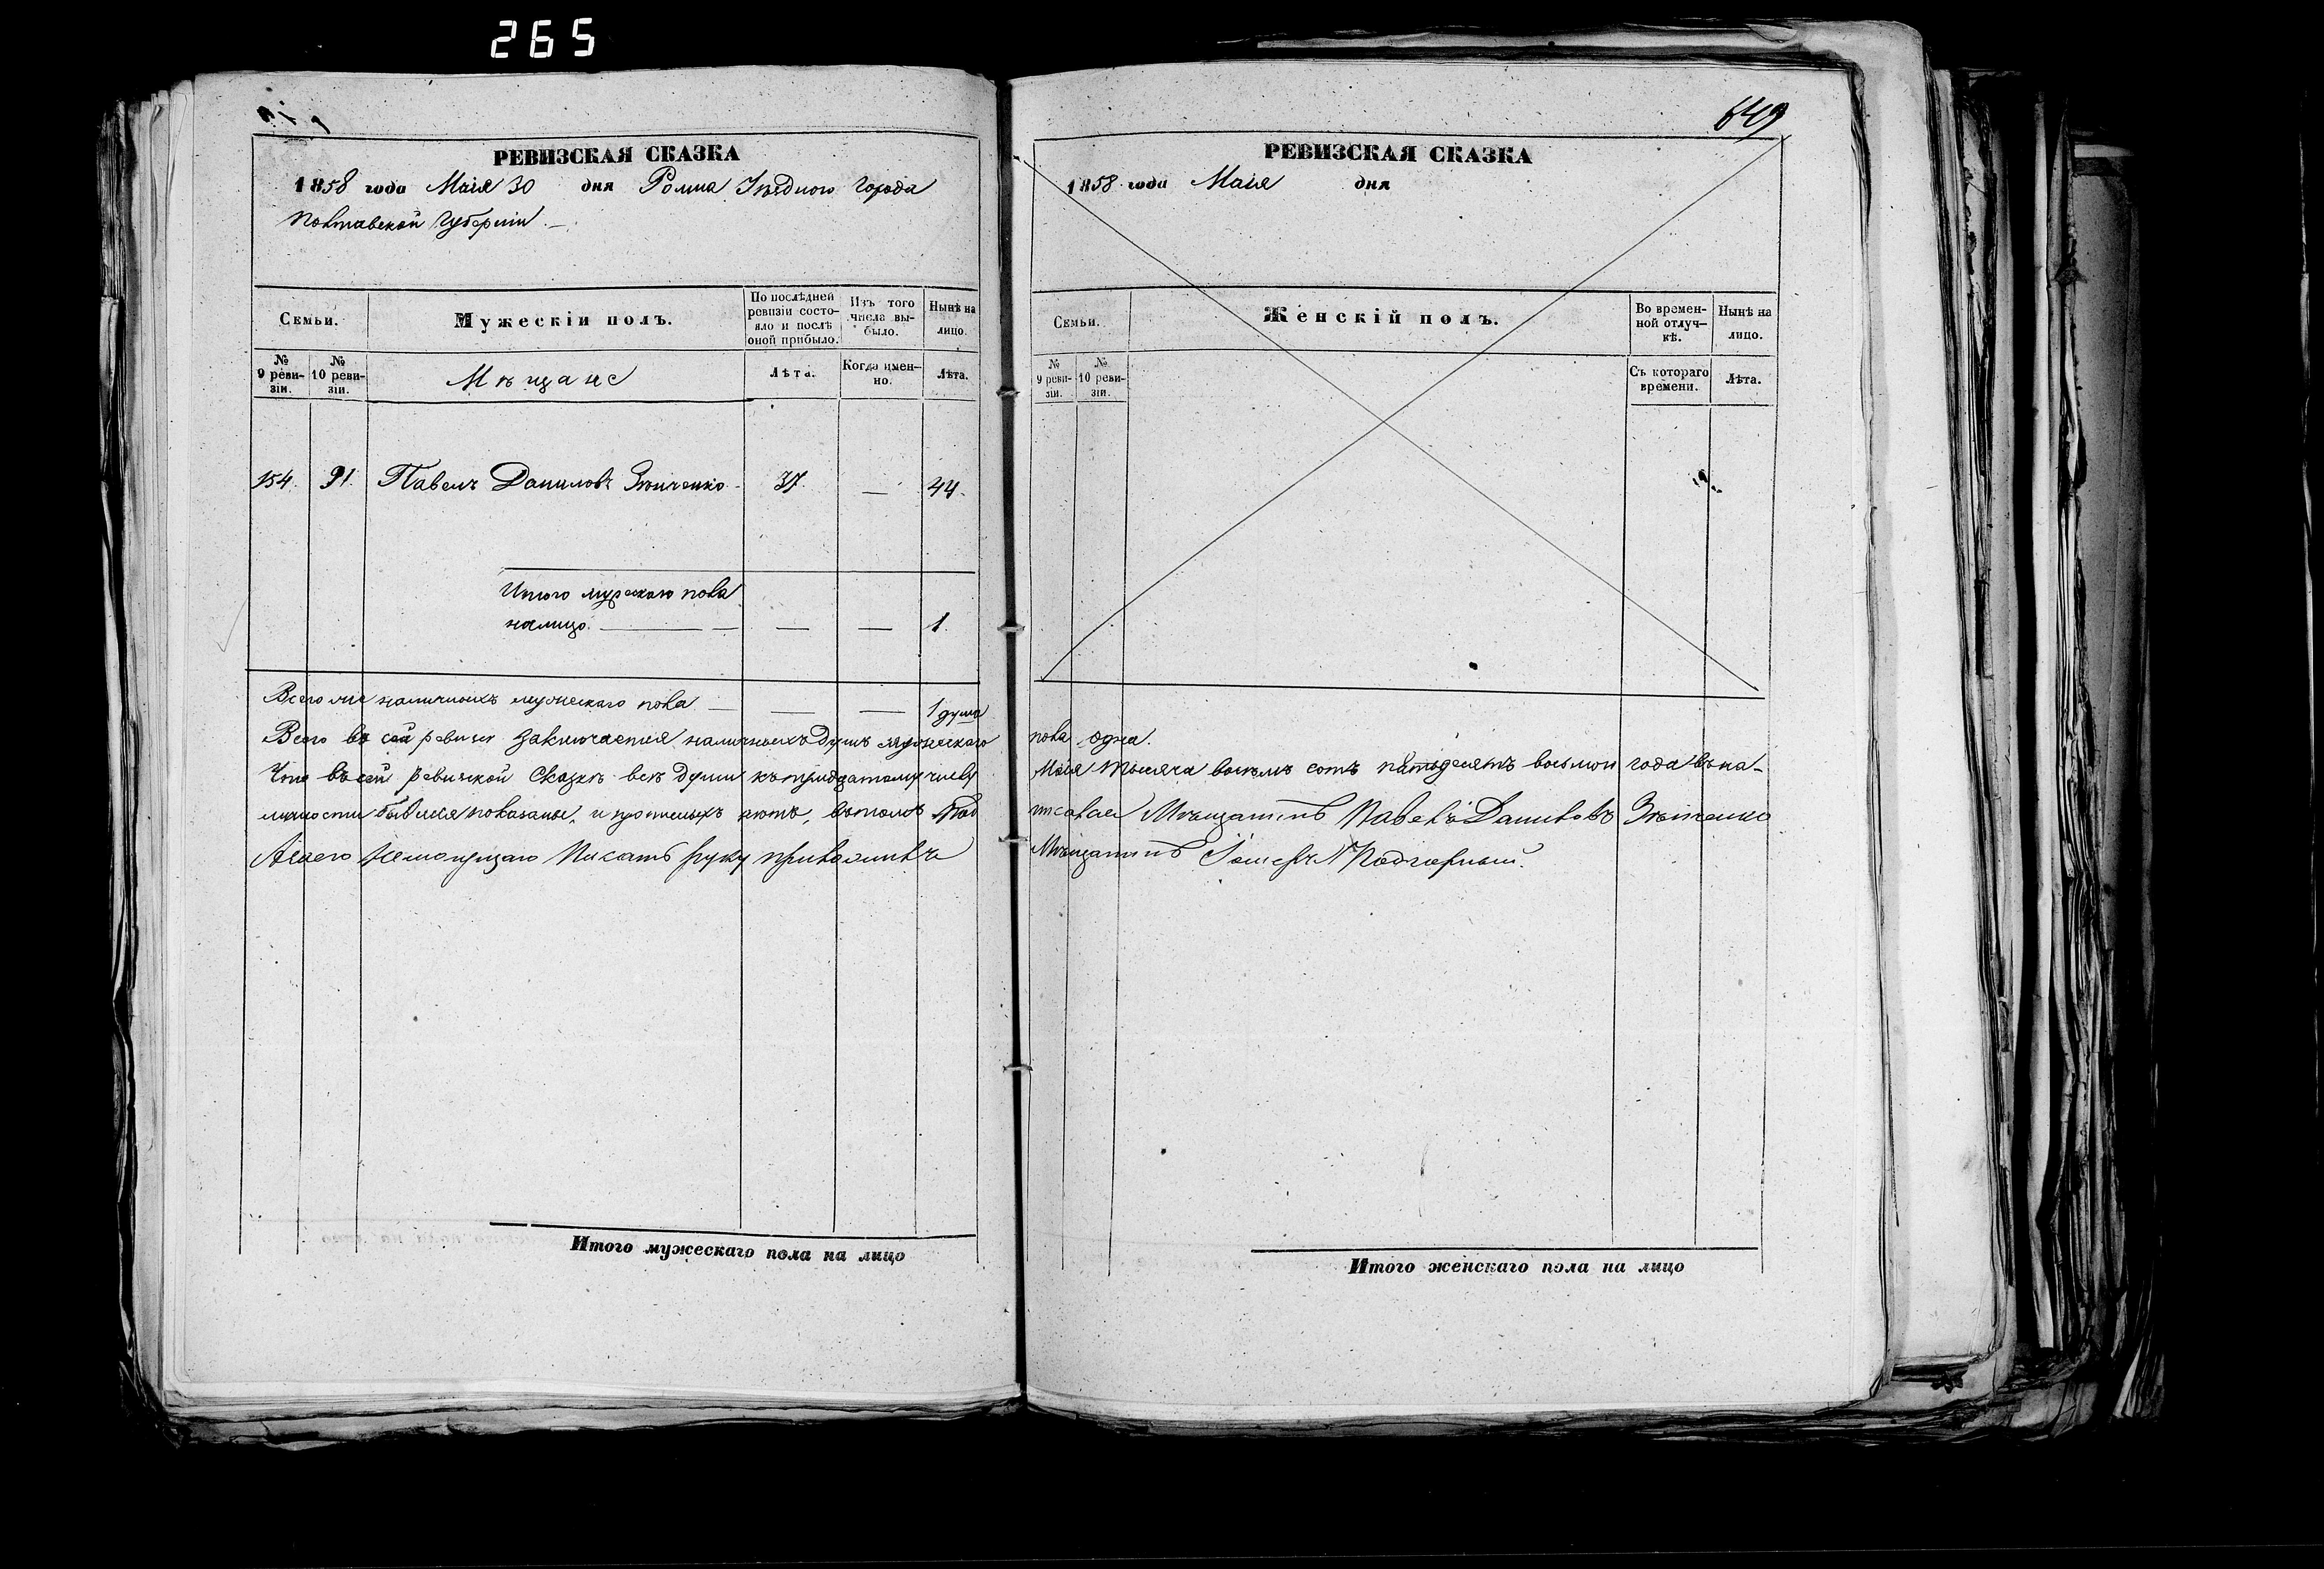 265
649
РЕВИЗСКАЯ СКАЗКА
1858 года Маія 30 дня Ромна Уѣзднаго Города
Полтавской Губерніи. —
Семьи.
Мужескій полъ.
По послѣдней ревизіи состояло и послѣ оной прибыло.
Изъ того числа выбыло.
Нынѣ на лицо.
№ 9 ревизіи.
№ 10 ревизіи.
Мѣщане
Лѣта.
Когда именно.
Лѣта.
154. 91. Павелъ Даниловъ 37. — 44.
Итого мужескаго пола
налицо. — — — 1.
Всего же наличныхъ мужескаго пола — — — 1 душа
Всего въ сей ревизіи заключается наличныхъ душъ мужескаго
Что въ сей ревизской сказкѣ всѣ души къ тридцатому числу
личности бывшія показаны, и прописныхъ нѣтъ, въ томъ под
Азаего немогущаго писать руку приложилъ
Итого мужескаго пола на лицо
РЕВИЗСКАЯ СКАЗКА
1858 года Маія дня
Семьи.
Женскій полъ.
Во временной отлучкѣ.
Нынѣ на лицо.
№ 9 ревизіи.
№ 10 ревизіи.
Съ котораго времени.
Лѣта.
пола одна.
Маія тысяча восемь сотъ пятьдесятъ восьмого года въ на-
писался Мѣщанинъ Павелъ Даниловъ
Мѣщанинъ Подгорный.
Итого женскаго пола на лицо